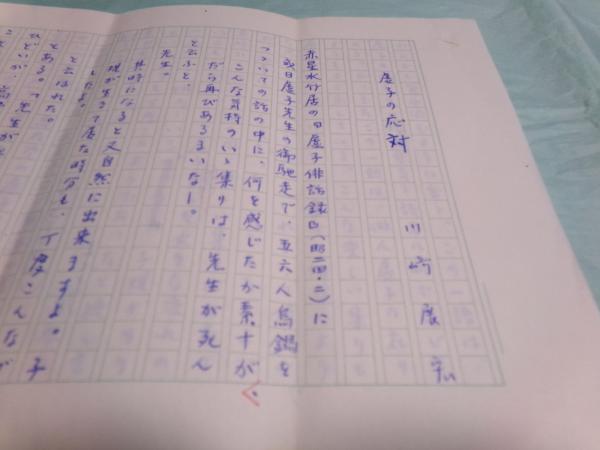 虚子の応対
川崎展宏
赤星水竹居の『虚子俳話録』(昭二四・二)に
或日虚子先生の御馳走で、五六人鳥鍋を
つついての話の中に、何を感じたか素十が、
こんな気持のいゝ集りは、先生が死ん
だら再びあるまいなー。
と云ふと、
先生。
其時になると又自然に出来ますよ。子
規が生きて居た時分も、丁度こんなが
したよ。
と云はれた。
とある。「先生が
ひどいが、